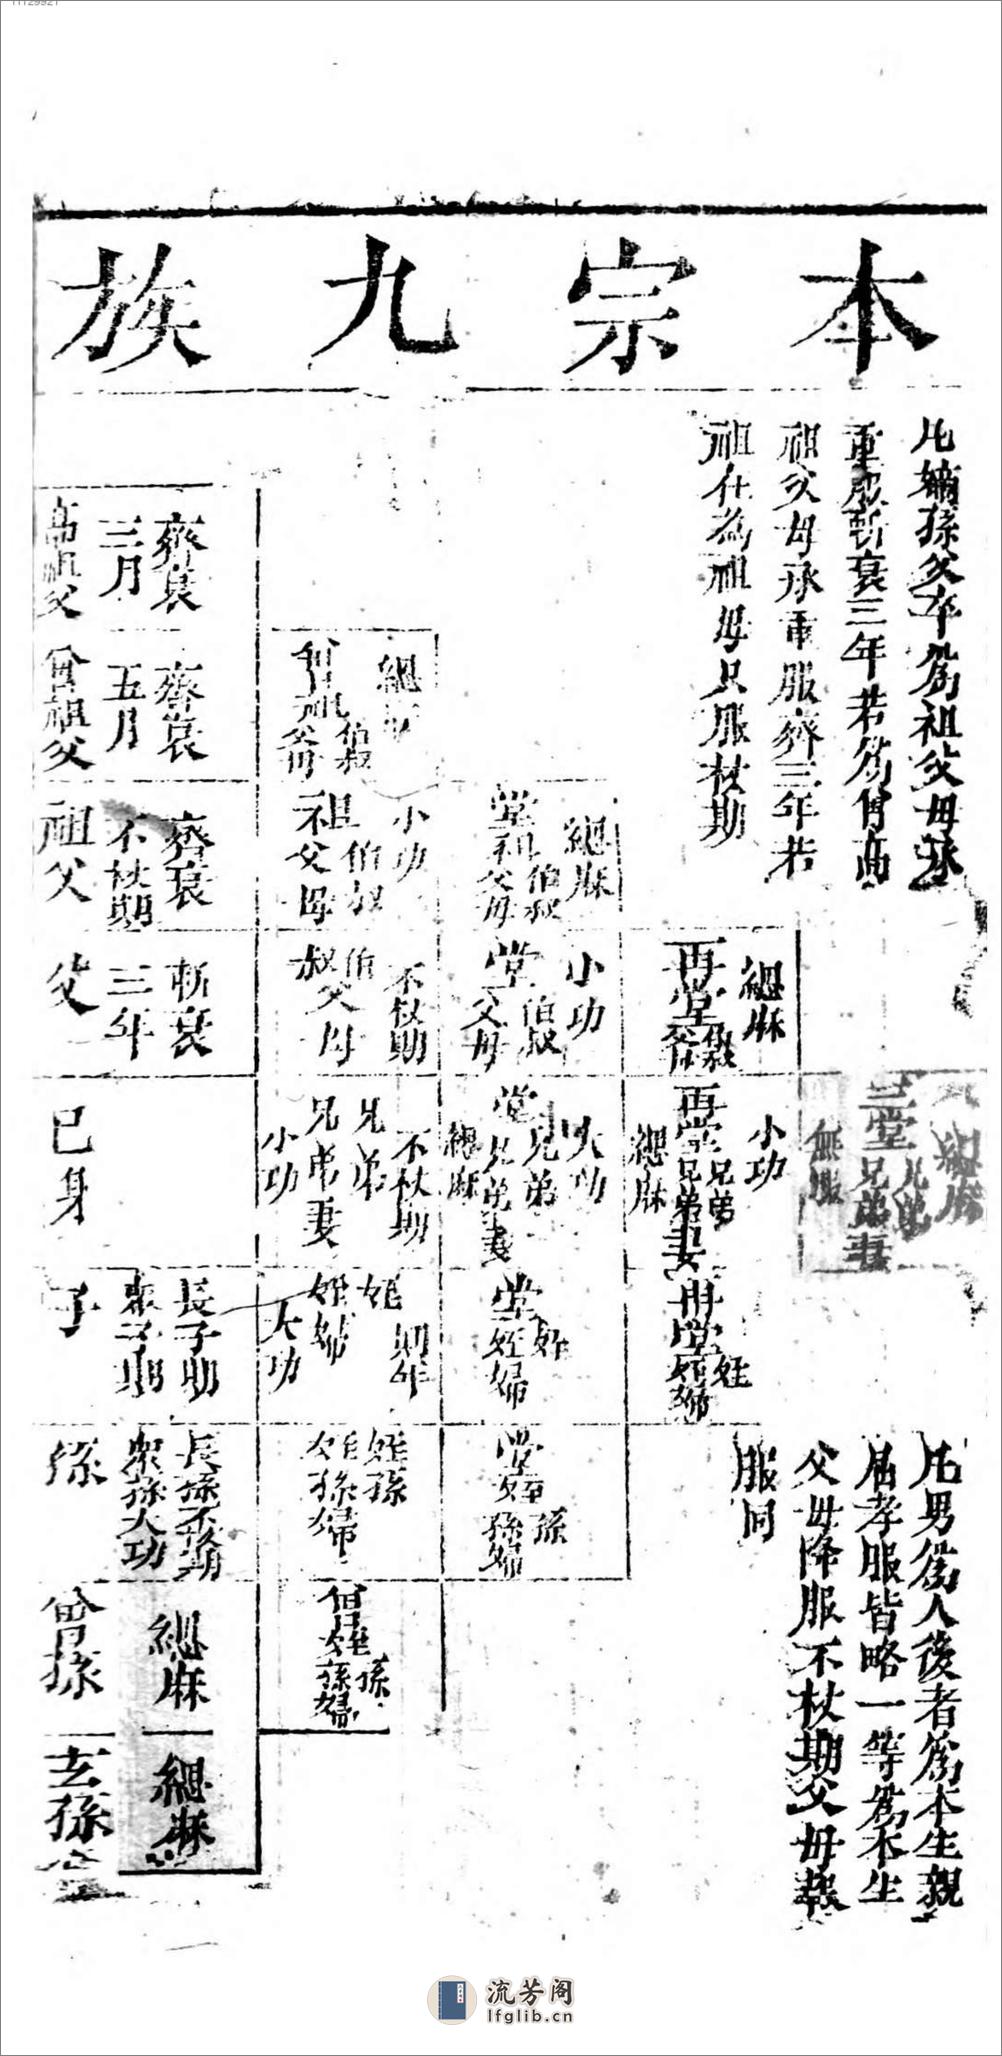 本宗九族
凡嫡孫父卒為祖父母承
重服斬衰三年若為曾高
祖父母承重服齊三年若
祖在為祖母只服杖期
緦麻
三堂兄弟
兄弟妻
無服
凡男為人後者為本生親
屬孝服皆降一等為本生
父母降服不杖期父母報
服同
緦麻
再堂伯叔父母
小功
再堂兄弟
兄弟妻
緦麻
再堂姪
姪婦
緦麻
堂祖伯叔
父母
小功
堂伯叔
父母
大功
堂兄弟
兄弟妻
緦麻
堂姪
姪婦
堂姪孫
孫婦
緦
曾祖伯叔
父母
小功
祖伯叔
父母
不杖期
伯叔父母
不杖期
兄弟
兄弟妻
小功
期年
姪
姪婦
大功
姪孫
姪孫婦
曾姪孫
姪孫婦
齊衰
三月
高祖父
齊衰
五月
曾祖父
齊衰
不杖期
祖父
斬衰
三年
父
己身
長子期
眾子期
子
長孫不杖期
眾孫大功
孫
緦麻
曾孫
緦麻
玄孫
流芳阁
lfglib.cn